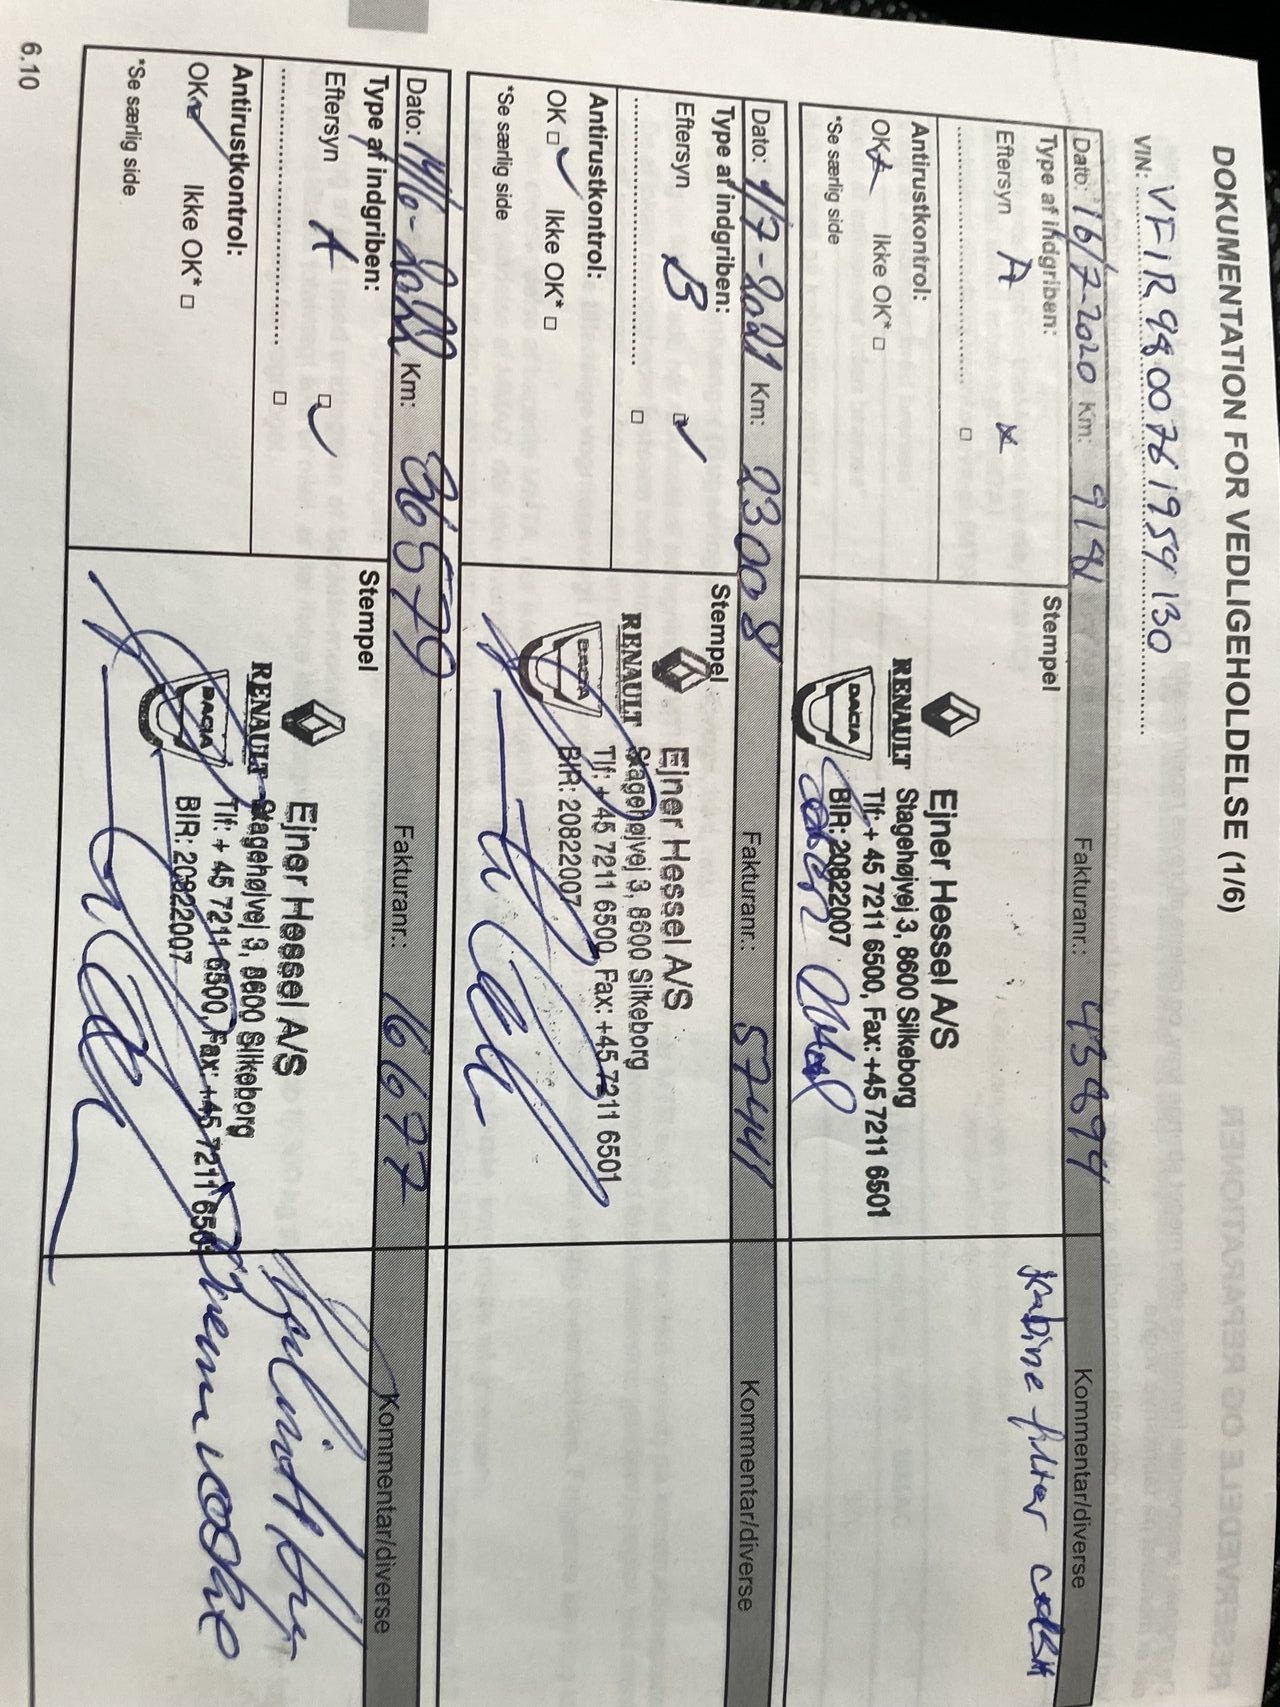 DOKUMENTATION FOR VEDLIGEHOLDELSE (1/6)
VIN: VF1R9800761954130
Dato: 16/7-2020 Km: 9181 Fakturanr.: 43899 Kommentar/diverse
Type af indgriben:
Eftersyn A x
Antirustkontrol:
OK x Ikke OK* □
*Se særlig side
Stempel
Ejner Hessel A/S
RENAULT Stagehøjvej 3, 8600 Silkeborg
Tlf: + 45 7211 6500, Fax: +45 7211 6501
DACIA BIR: 20822007
Kabine filter
Dato: 1/7-2021 Km: 23008 Fakturanr.: 57441 Kommentar/diverse
Type af indgriben:
Eftersyn B □ ✓
Antirustkontrol:
OK □ ✓ Ikke OK* □
*Se særlig side
Stempel
Ejner Hessel A/S
RENAULT Stagehøjvej 3, 8600 Silkeborg
Tlf: + 45 7211 6500, Fax: +45 7211 6501
DACIA BIR: 20822007
Dato: Km: 36579 Fakturanr.: 16677 Kommentar/diverse
Type af indgriben:
Eftersyn A □ ✓
Antirustkontrol:
OK ✓ Ikke OK* □
*Se særlig side
Stempel
Ejner Hessel A/S
RENAULT Stagehøjvej 3, 8600 Silkeborg
Tlf: + 45 7211 6500, Fax: +45 7211 6501
DACIA BIR: 20822007
6.10